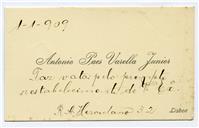 1-1-909
Antonio Paes Varella Junior
Faz votos pelo prompto
restabelecimento de V. Ex.ª
R. A. Herculano 32
Lisboa